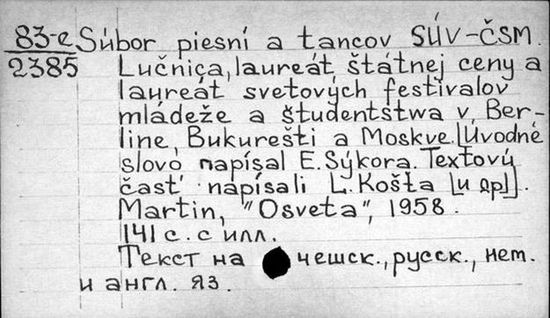 83-е Súbor piesní a tancov SÚV-ČSM.
2385 Lučnica, laureát štátnej ceny a
laureát svetových festivalov
mládeže a študentstwa v Ber-
line, Bukurešti a Moskve. [Úvodné
slovo napísal E. Sýkora. Textovú
časť napísali L. Košta [и др]].
Martin, "Osveta", 1958.
141 с. с илл.
Текст на чешск., русск., нем.
и англ. яз.